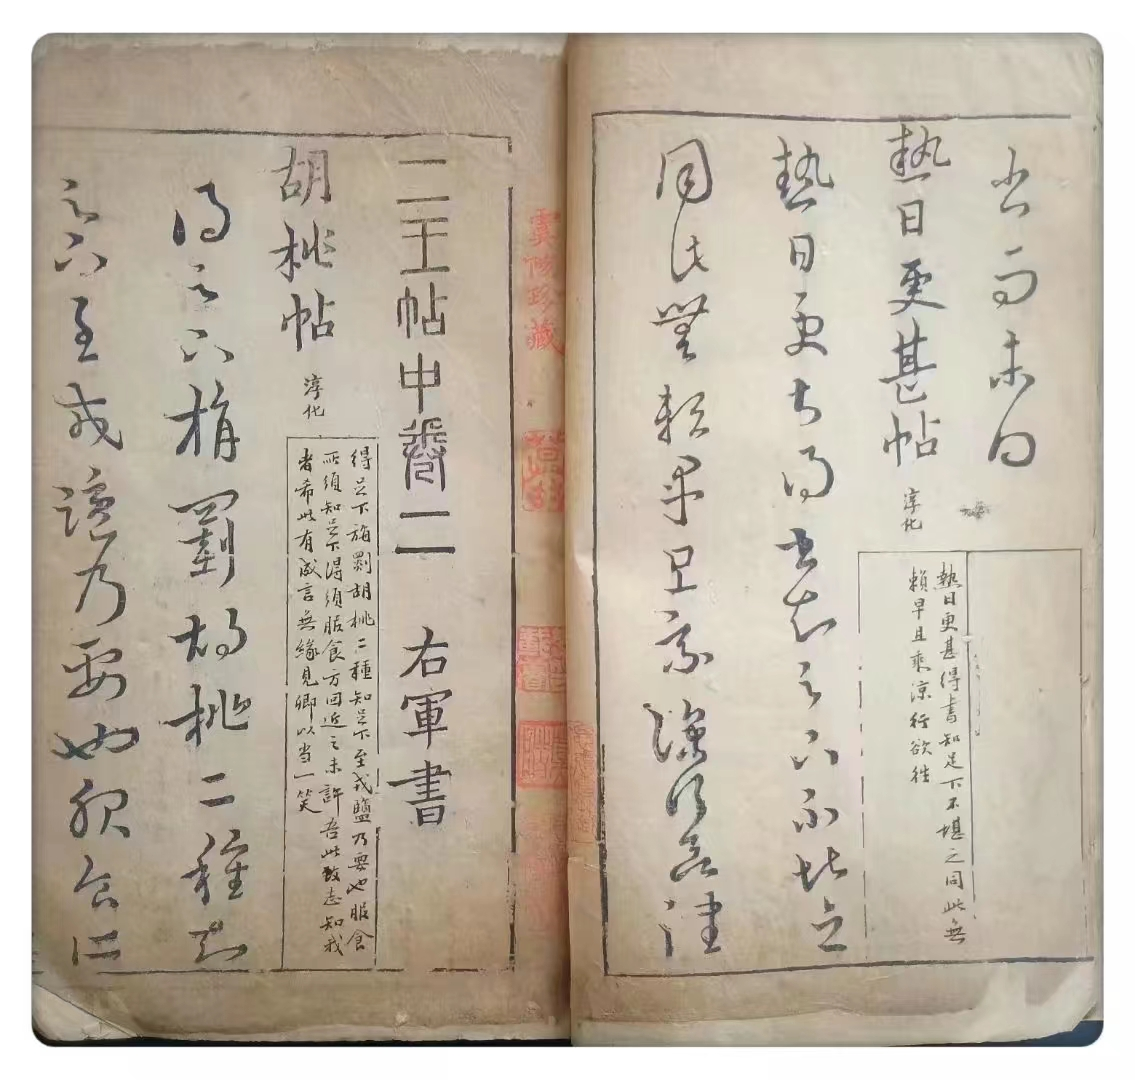 熱日更甚帖 淳化
熱日更甚得書知足下不堪之同此無
賴早且乘涼行欲往
熱日更甚得書知足下不堪之
同此無賴早且乘涼行欲往
虞脩珍藏
二王帖中卷二 右軍書
胡桃帖 淳化
得足下旃罽胡桃二種知足下至戎鹽乃要也服食
所須知足下得須服食方回近之未許吾此致志知我
者希此有成言無緣見卿以當一笑
得足下旃罽胡桃二種知
足下至戎鹽乃要也服食所